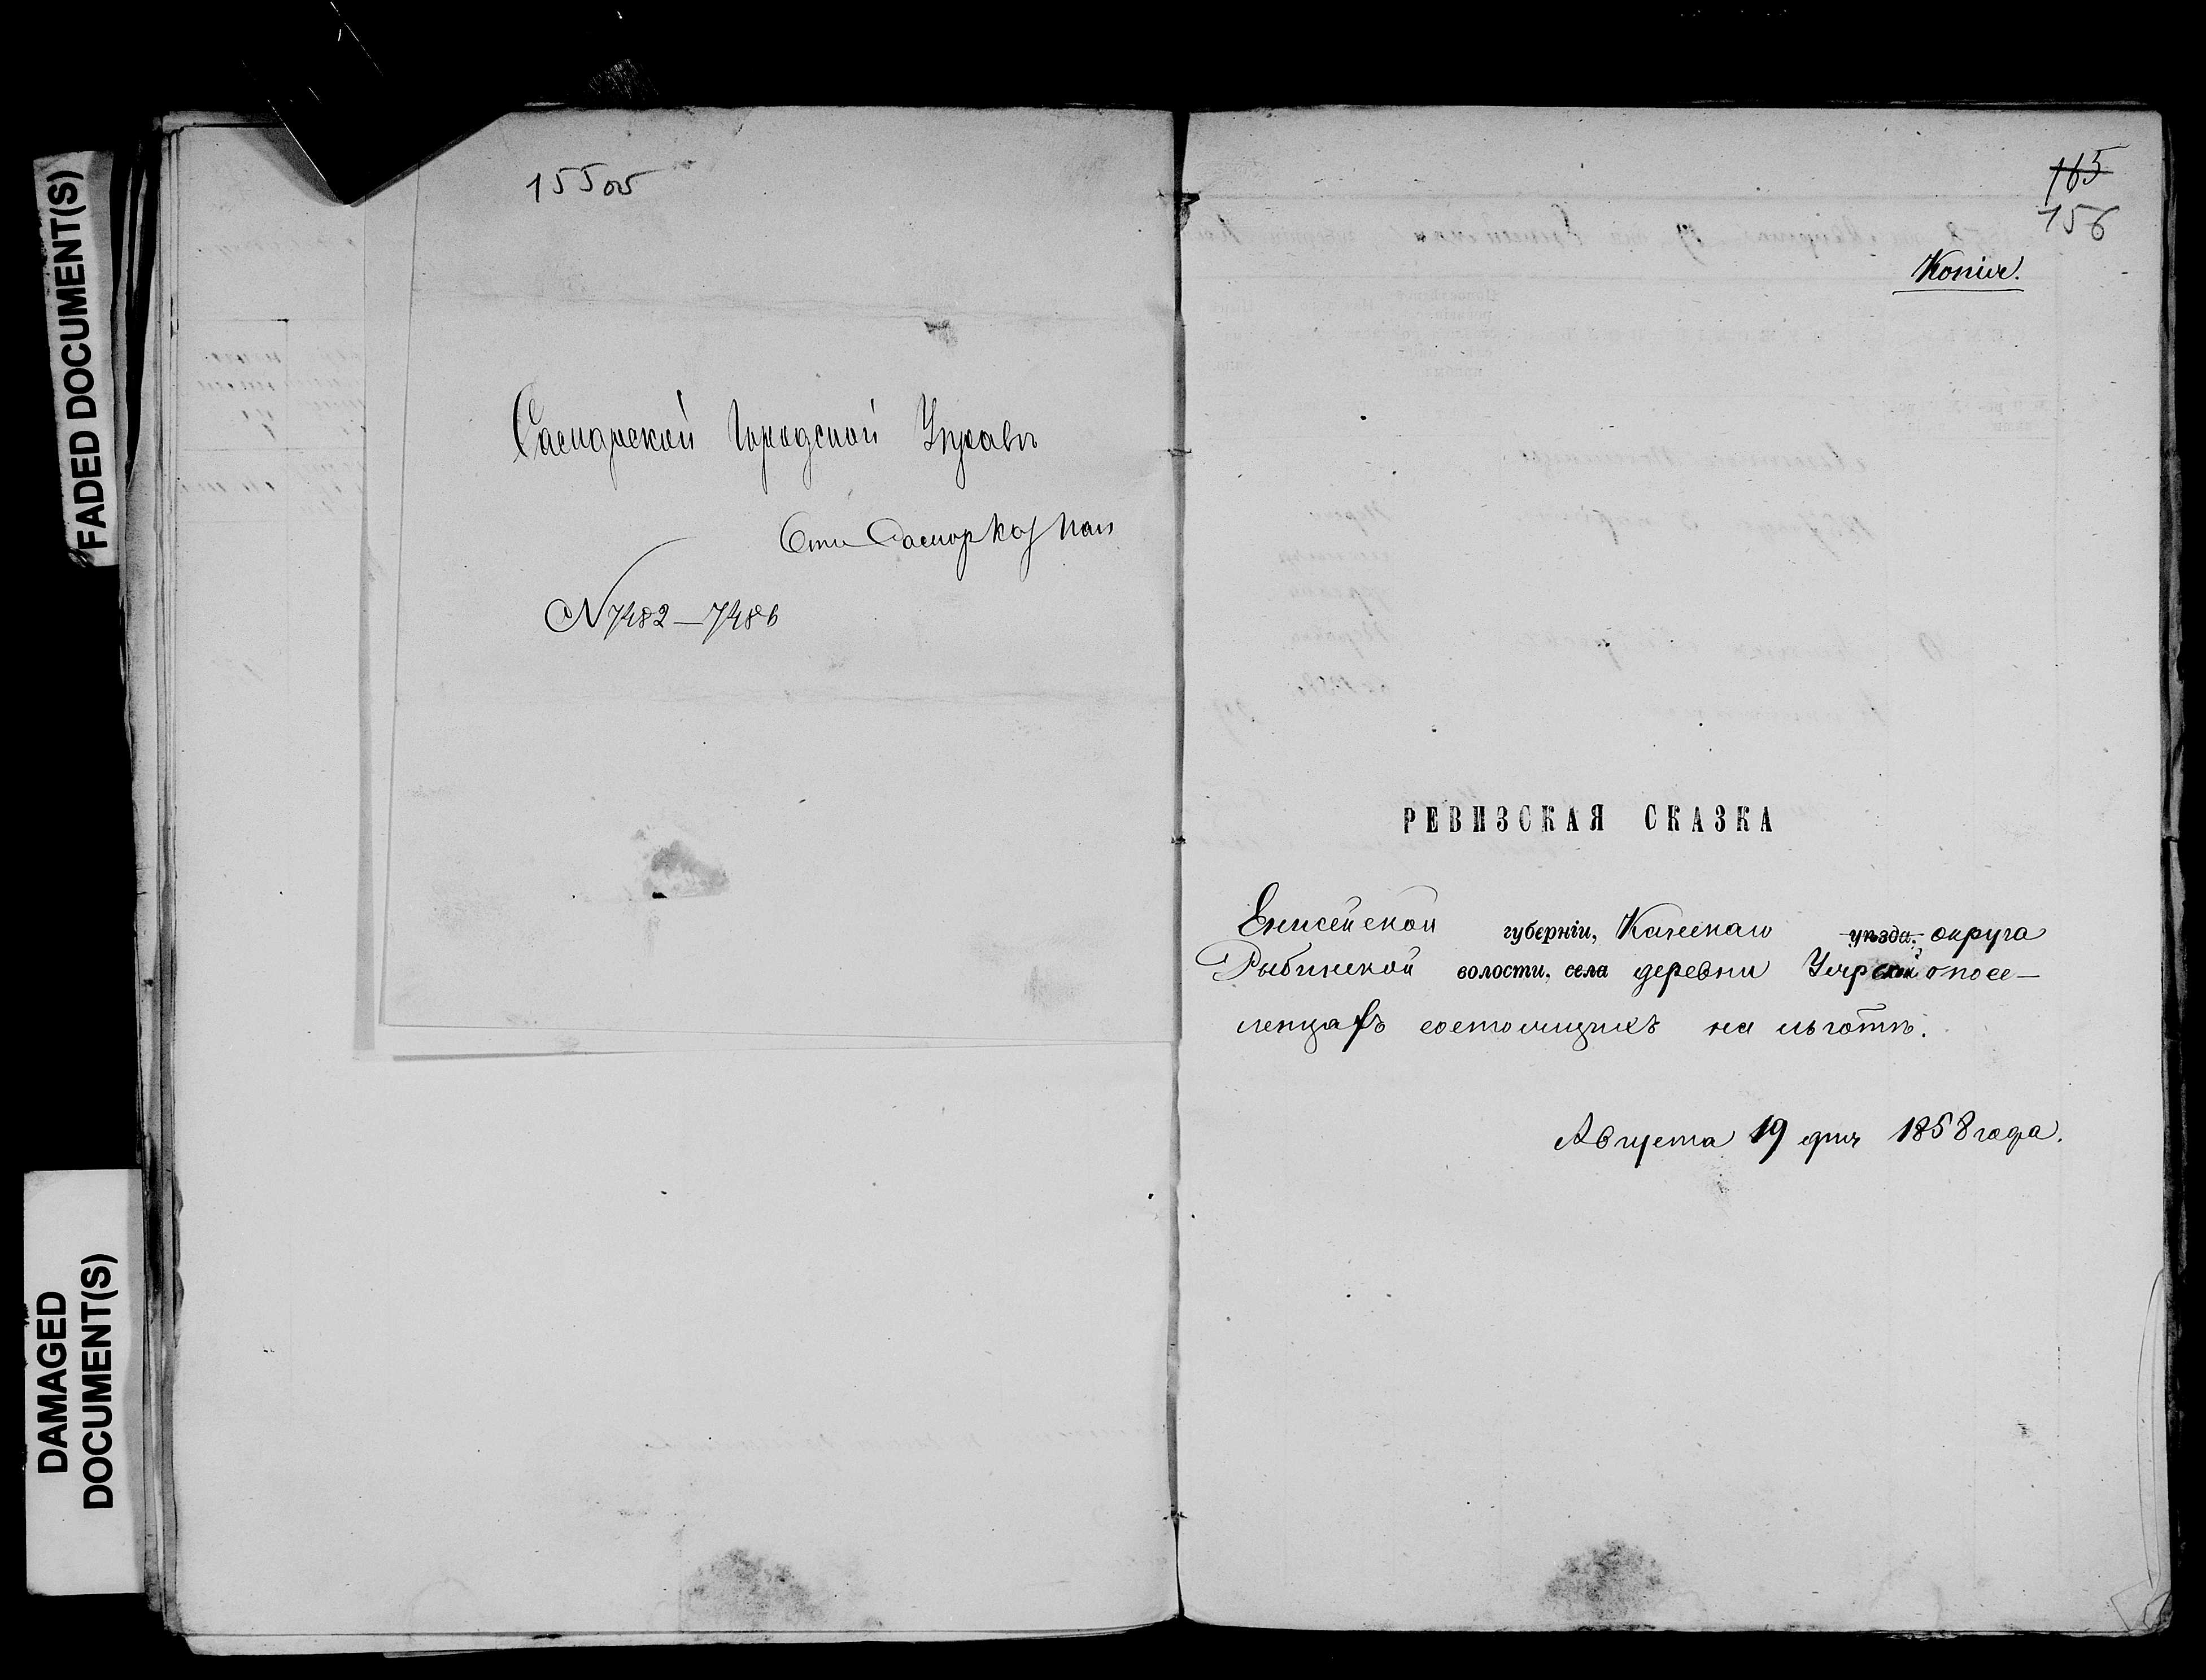 FADED DOCUMENT(S)
DAMAGED
DOCUMENT(S)
155об
Самарской Городской Управѣ
Отъ Самар Каз Пал
№ 7482—7486
165
156
Копія.
РЕВИЗСКАЯ СКАЗКА
Енисейской губерніи, Канскаго уѣзда, округа
Рыбинской волости, села деревни Уярской о посе-
ленцахъ состоящихъ на льготѣ.
Августа 19 дня 1858 года.